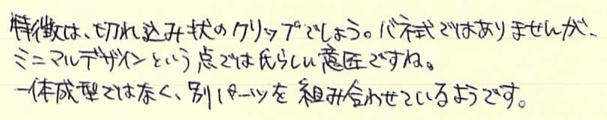 特徴は、切れ込み状のクリップでしょう。バネ式ではありませんが、
ミニマルデザインという点では氏らしい意匠ですね。
一体成型ではなく、別パーツを組み合わせているようです。